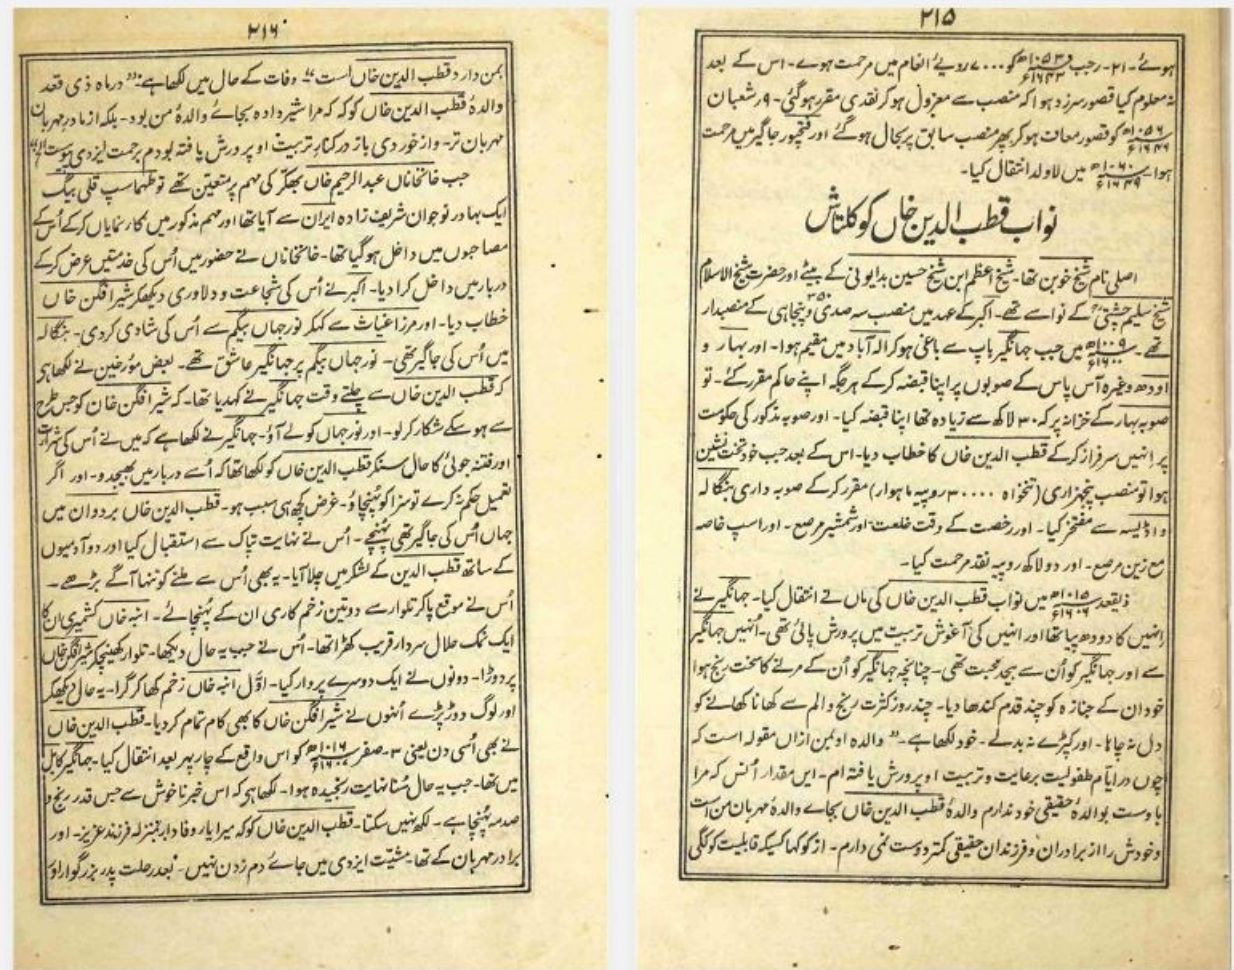 ۲۱۵
ہوئے۔ ۲۱۔ رجب ۱۰۵۳ھ ۱۶۴۳ء کو ۷۰۰۰ روپے انعام میں مرحمت ہوے۔ اس کے بعد
نہ معلوم کیا قصور سرزد ہوا کہ منصب سے معزول ہو کر نقدی مقرر ہوگئی۔ ۹ رشعبان
۱۰۵۶ھ ۱۶۴۶ء کو قصور معاف ہوکر پھر منصب سابق پر بحال ہوگئے اور فتحپور جاگیر میں مرحمت
ہوا ۱۰۶۰ھ ۱۶۴۹ء میں لاولد انتقال کیا۔
نواب قطب الدین خاں کوکلتاش
اصلی نام شیخ خوبن تھا۔ شیخ اعظم ابن شیخ حسین بدایونی کے بیٹے اور حضرت شیخ الاسلام
شیخ سلیم چشتیؒ کے نواسے تھے۔ اکبر کے عہد میں منصب سہ صدی و پنجاہی ۳۵۰ کے منصبدار
تھے۔ ۱۰۰۹ھ ۱۶۰۰ء میں جب جہانگیر باپ سے باغی ہوکر الہ آباد میں مقیم ہوا۔ اور بہار و
اودھ وغیرہ آس پاس کے صوبوں پر اپنا قبضہ کرکے ہر جگہ اپنے حاکم مقرر کئے۔ تو
صوبہ بہار کے خزانہ پر کہ ۳۰ لاکھ سے زیادہ تھا اپنا قبضہ کیا۔ اور صوبہ مذکور کی حکومت
پر انہیں سرفراز کرکے قطب الدین خاں کا خطاب دیا۔ اس کے بعد جب خود تخت نشین
ہوا تو منصب پنجہزاری (تنخواہ ۳۰۰۰۰ روپیہ ماہوار) مقرر کرکے صوبہ داری بنگالہ
و اڈیسہ سے مفتخر کیا۔ اور رخصت کے وقت خلعت اور شمشیر مرصع۔ اور اسپ خاصہ
مع زین مرصع۔ اور دو لاکھ روپیہ نقد مرحمت کیا۔
ذیقعد ۱۰۱۵ھ ۱۶۰۶ء میں نواب قطب الدین خاں کی ماں نے انتقال کیا۔ جہانگیر نے
انہیں کا دودھ پیا تھا اور انہیں کی آغوش تربیت میں پرورش پائی تھی۔ اُنہیں جہانگیر
سے اور جہانگیر کو اُن سے بیحد محبت تھی۔ چنانچہ جہانگیر کو اُن کے مرنے کا سخت رنج ہوا
خود ان کے جنازہ کو چند قدم کندھا دیا۔ چند روز کثرت رنج و الم سے کھانا کھانے کو
دل نہ چاہا۔ اور کپڑے نہ بدلے۔ خود لکھا ہے۔ "والدہ او بمن ازاں مقولہ است کہ
چوں در ایام طفولیت برعایت و تربیت او پرورش یافتہ ام۔ ایں مقدار اُنس کہ مرا
با وست بوالدۂ حقیقی خود ندارم والدۂ قطب الدین خاں بجاے والدۂ مہربان من است
و خودش را از برادران و فرزندان حقیقی کمتر دوست نمی دارم۔ از کوکہا کسیکہ قابلیت کوکگی
۲۱۶
بمن دارد قطب الدین خاں است" وفات کے حال میں لکھا ہے: "درماہ ذی قعد
والدۂ قطب الدین خاں کوکہ کہ مرا شیر دادہ بجاے والدۂ من بود۔ بلکہ از مادر مہربان
مہربان تر۔ واز خوردی باز در کنار تربیت او پرورش یافتہ بودم برحمت ایزدی پیوست"
جب خانخاناں عبدالرحیم خاں بھکر کی مہم پر متعین تھے تو طہماسپ قلی بیگ
ایک بہادر نوجوان شریف زادہ ایران سے آیا تھا اور مہم مذکور میں کار نمایاں کرکے اُس کے
مصاحبوں میں داخل ہوگیا تھا۔ خانخاناں نے حضور میں اُس کی خدمتیں عرض کرکے
دربار میں داخل کرا دیا۔ اکبر نے اُس کی شجاعت و دلاوری دیکھکر شیر افگن خاں
خطاب دیا۔ اور مرزا غیاث سے کہکر نور جہاں بیگم سے اُس کی شادی کردی۔ بنگالہ
میں اُس کی جاگیر تھی۔ نور جہاں بیگم پر جہانگیر عاشق تھے۔ بعض مؤرخین نے لکھا ہی
کہ قطب الدین خاں سے چلتے وقت جہانگیر نے کہدیا تھا۔ کہ شیر افگن خان کو جس طرح
سے ہو سکے شکار کر لو۔ اور نور جہاں کو لے آؤ۔ جہانگیر نے لکھا ہے کہ میں نے اُس کی شرارت
اور فتنہ جوئی کا حال سنکر قطب الدین خاں کو لکھا تھا کہ اُسے دربار میں بھیجدو۔ اور اگر
تعمیل حکم نہ کرے تو سزا کو پہنچاؤ۔ غرض کچھ ہی سبب ہو۔ قطب الدین خاں بردوان میں
جہاں اُس کی جاگیر تھی پہنچے۔ اُس نے نہایت تپاک سے استقبال کیا اور دو آدمیوں
کے ساتھ قطب الدین کے لشکر میں چلا آیا۔ یہ بھی اُس سے ملنے کو تنہا آگے بڑھے۔
اُس نے موقع پاکر تلوار سے دو تین زخم کاری ان کے پہنچائے۔ انبہ خاں کشمیری ان کا
ایک نمک حلال سردار قریب کھڑا تھا۔ اُس نے جب یہ حال دیکھا۔ تلوار کھینچکر شیر افگن خاں
پر دوڑا۔ دونوں نے ایک دوسرے پر وار کیا۔ اوّل انبہ خاں زخم کھا کر گرا۔ یہ حال دیکھکر
اور لوگ دوڑ پڑے اُنہوں نے شیر افگن خاں کا بھی کام تمام کر دیا۔ قطب الدین خاں
نے بھی اُسی دن یعنی ۳۔ صفر ۱۰۱۶ھ کو اس واقع کے چار پہر بعد انتقال کیا۔ جہانگیر کابل
میں تھا۔ جب یہ حال سُنا نہایت رنجیدہ ہوا۔ لکھا ہی کہ اس خبر نا خوش سے جس قدر رنج و
صدمہ پہنچا ہے۔ لکھ نہیں سکتا۔ قطب الدین خاں کوکہ میرا یار وفادار بمنزلہ فرزند عزیز۔ اور
برادر مہربان کے تھا۔ مشیّت ایزدی میں جاے دم زدن نہیں۔ بعد رحلت پدر بزرگوار او